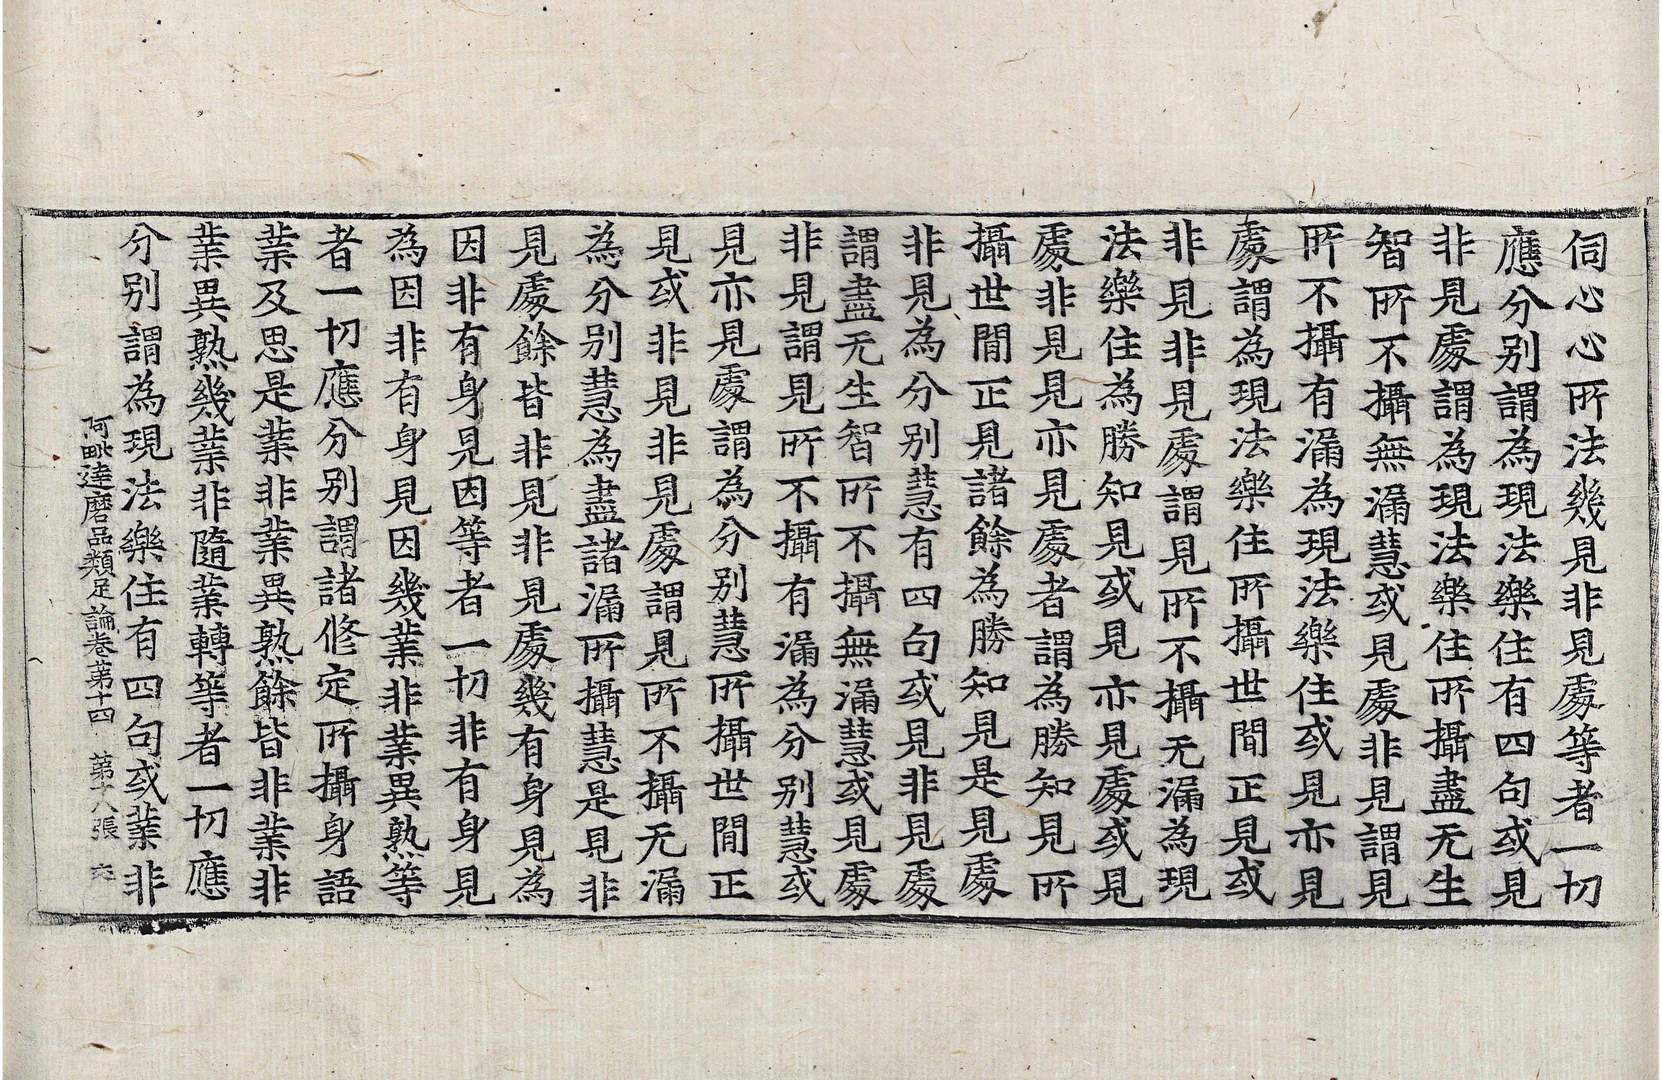 伺心心所法幾見非見處等者一切
應分別謂為現法樂住有四句或見
非見處謂為現法樂住所攝盡无生
智所不攝無漏慧或見處非見謂見
所不攝有漏為現法樂住或見亦見
處謂為現法樂住所攝世間正見或
非見非見處謂見所不攝无漏為現
法樂住為勝知見或見亦見處或見
處非見見亦見處者謂為勝知見所
攝世間正見諸餘為勝知見是見處
非見為分別慧有四句或見非見處
謂盡无生智所不攝無漏慧或見處
非見謂見所不攝有漏為分別慧或
見亦見處謂為分別慧所攝世間正
見或非見非見處謂見所不攝无漏
為分別慧為盡諸漏所攝慧是見非
見處餘皆非見非見處幾有身見為
因非有身見因等者一切非有身見
為因非有身見因幾業非業異熟等
者一切應分別謂諸修定所攝身語
業及思是業非業異熟餘皆非業非
業異熟幾業非隨業轉等者一切應
分別謂為現法樂住有四句或業非
阿毗達磨品類足論卷第十四 第十八張 交